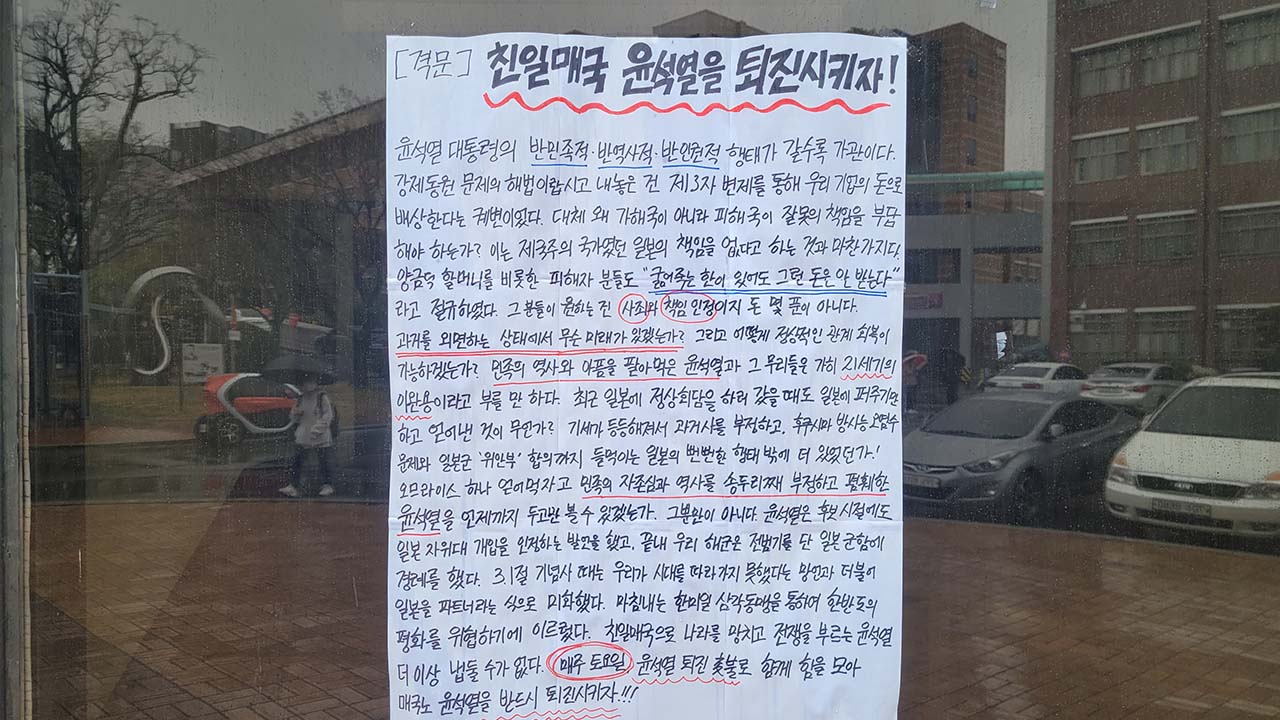 [격문] 친일매국 윤석열을 퇴진시키자!
윤석열 대통령의 반민족적·반역사적·반인권적 행태가 갈수록 가관이다.
강제동원 문제의 해법이랍시고 내놓은 건 제3자 변제를 통해 우리 기업의 돈으로
배상한다는 궤변이었다. 대체 왜 가해국이 아니라 피해국이 잘못의 책임을 부담
해야 하는가? 이는 제국주의 국가였던 일본의 책임을 없다고 하는 것과 마찬가지다.
양금덕 할머니를 비롯한 피해자 분들도 "굶어죽는 한이 있어도 그런 돈은 안 받는다"
라고 절규하였다. 그분들이 원하는 건 사죄와 책임 인정이지 돈 몇 푼이 아니다.
과거를 외면하는 상태에서 무슨 미래가 있겠는가? 그리고 어떻게 정상적인 관계 회복이
가능하겠는가? 민족의 역사와 아픔을 팔아먹은 윤석열과 그 무리들은 가히 21세기의
이완용이라고 부를 만 하다. 최근 일본에 정상회담을 하러 갔을 때도 일본에 퍼주기만
하고 얻어낸 것이 무언가? 기세가 등등해져서 과거사를 부정하고, 후쿠시마 방사능 오염수
문제와 일본군 '위안부' 합의까지 들먹이는 일본의 뻔뻔한 행태 밖에 더 있었던가!
오므라이스 하나 얻어먹자고 민족의 자존심과 역사를 송두리째 부정하고 폄훼한
윤석열을 언제까지 두고만 볼 수 있겠는가. 그뿐만이 아니다. 윤석열은 후보 시절에도
일본 자위대 개입을 인정하는 발언을 했고, 끝내 우리 해군은 전범기를 단 일본 군함에
경례를 했다. 3.1절 기념사 때는 우리가 시대를 따라가지 못했다는 망언과 더불어
일본을 파트너라는 식으로 미화했다. 마침내는 한미일 삼각동맹을 통하여 한반도의
평화를 위협하기에 이르렀다. 친일매국으로 나라를 망치고 전쟁을 부르는 윤석열
더 이상 냅둘 수가 없다. 매주 토요일 윤석열 퇴진 촛불로 함께 힘을 모아
매국노 윤석열을 반드시 퇴진시키자!!!